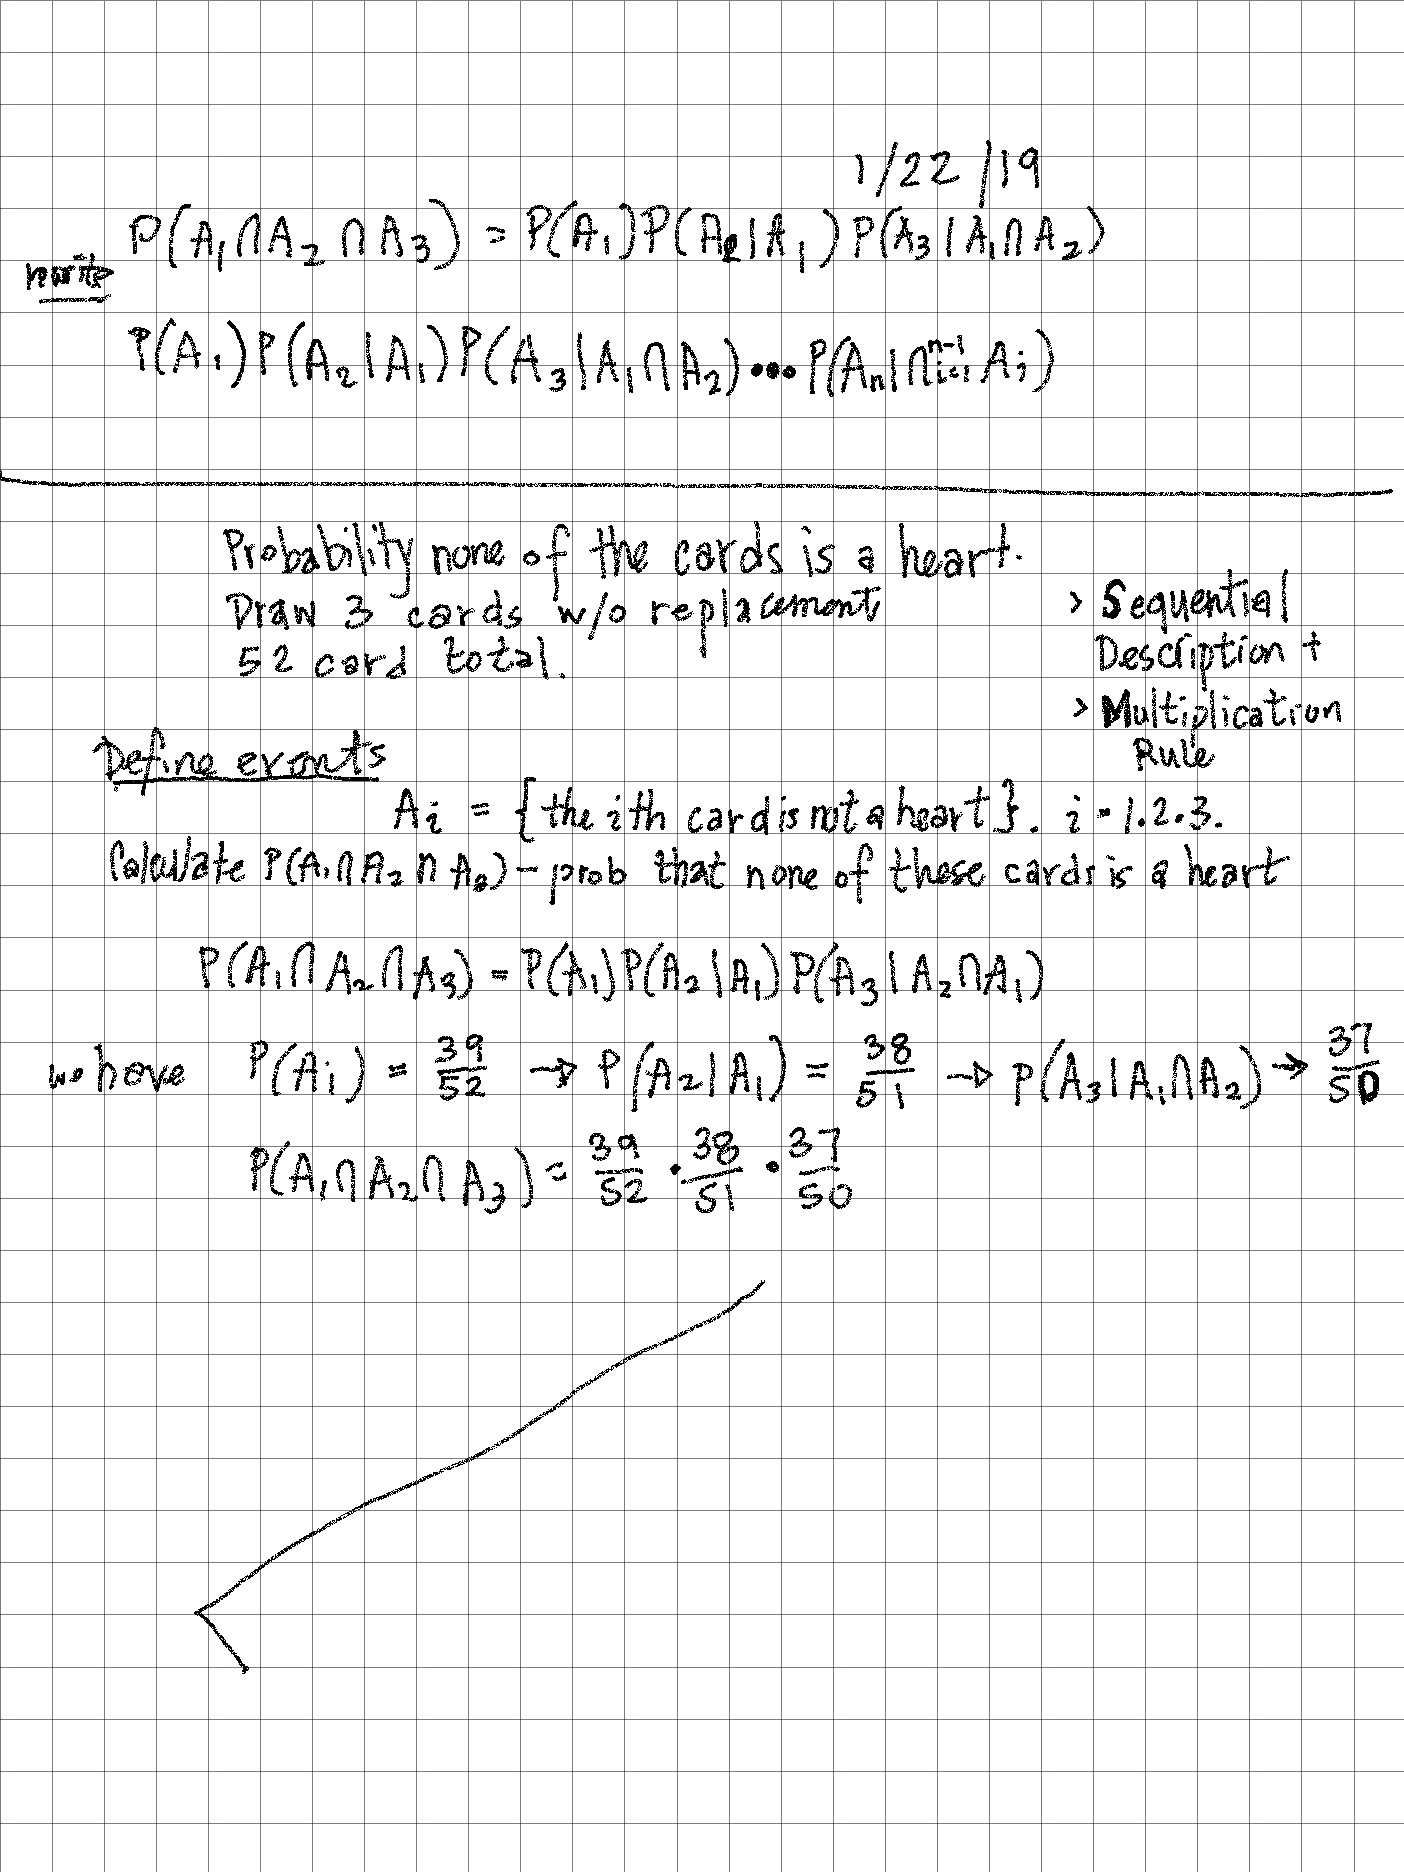 1/22/19
P(A₁∩A₂∩A₃) = P(A₁)P(A₂|A₁)P(A₃|A₁∩A₂)
rewrite
P(A₁)P(A₂|A₁)P(A₃|A₁∩A₂)•••P(Aₙ|∩ⁿ⁻¹ᵢ₌₁Aᵢ)
Probability none of the cards is a heart.
Draw 3 cards w/o replacement
52 card total.
> Sequential
Description +
> Multiplication
Rule
Define events
Aᵢ = {the ith card is not a heart}. i = 1.2.3.
Calculate P(A₁∩A₂∩A₃) - prob that none of these cards is a heart
P(A₁∩A₂∩A₃) = P(A₁)P(A₂|A₁)P(A₃|A₂∩A₁)
we have P(Aᵢ) = 39/52 → P(A₂|A₁) = 38/51 → P(A₃|A₁∩A₂) → 37/50
P(A₁∩A₂∩A₃) = 39/52 • 38/51 • 37/50